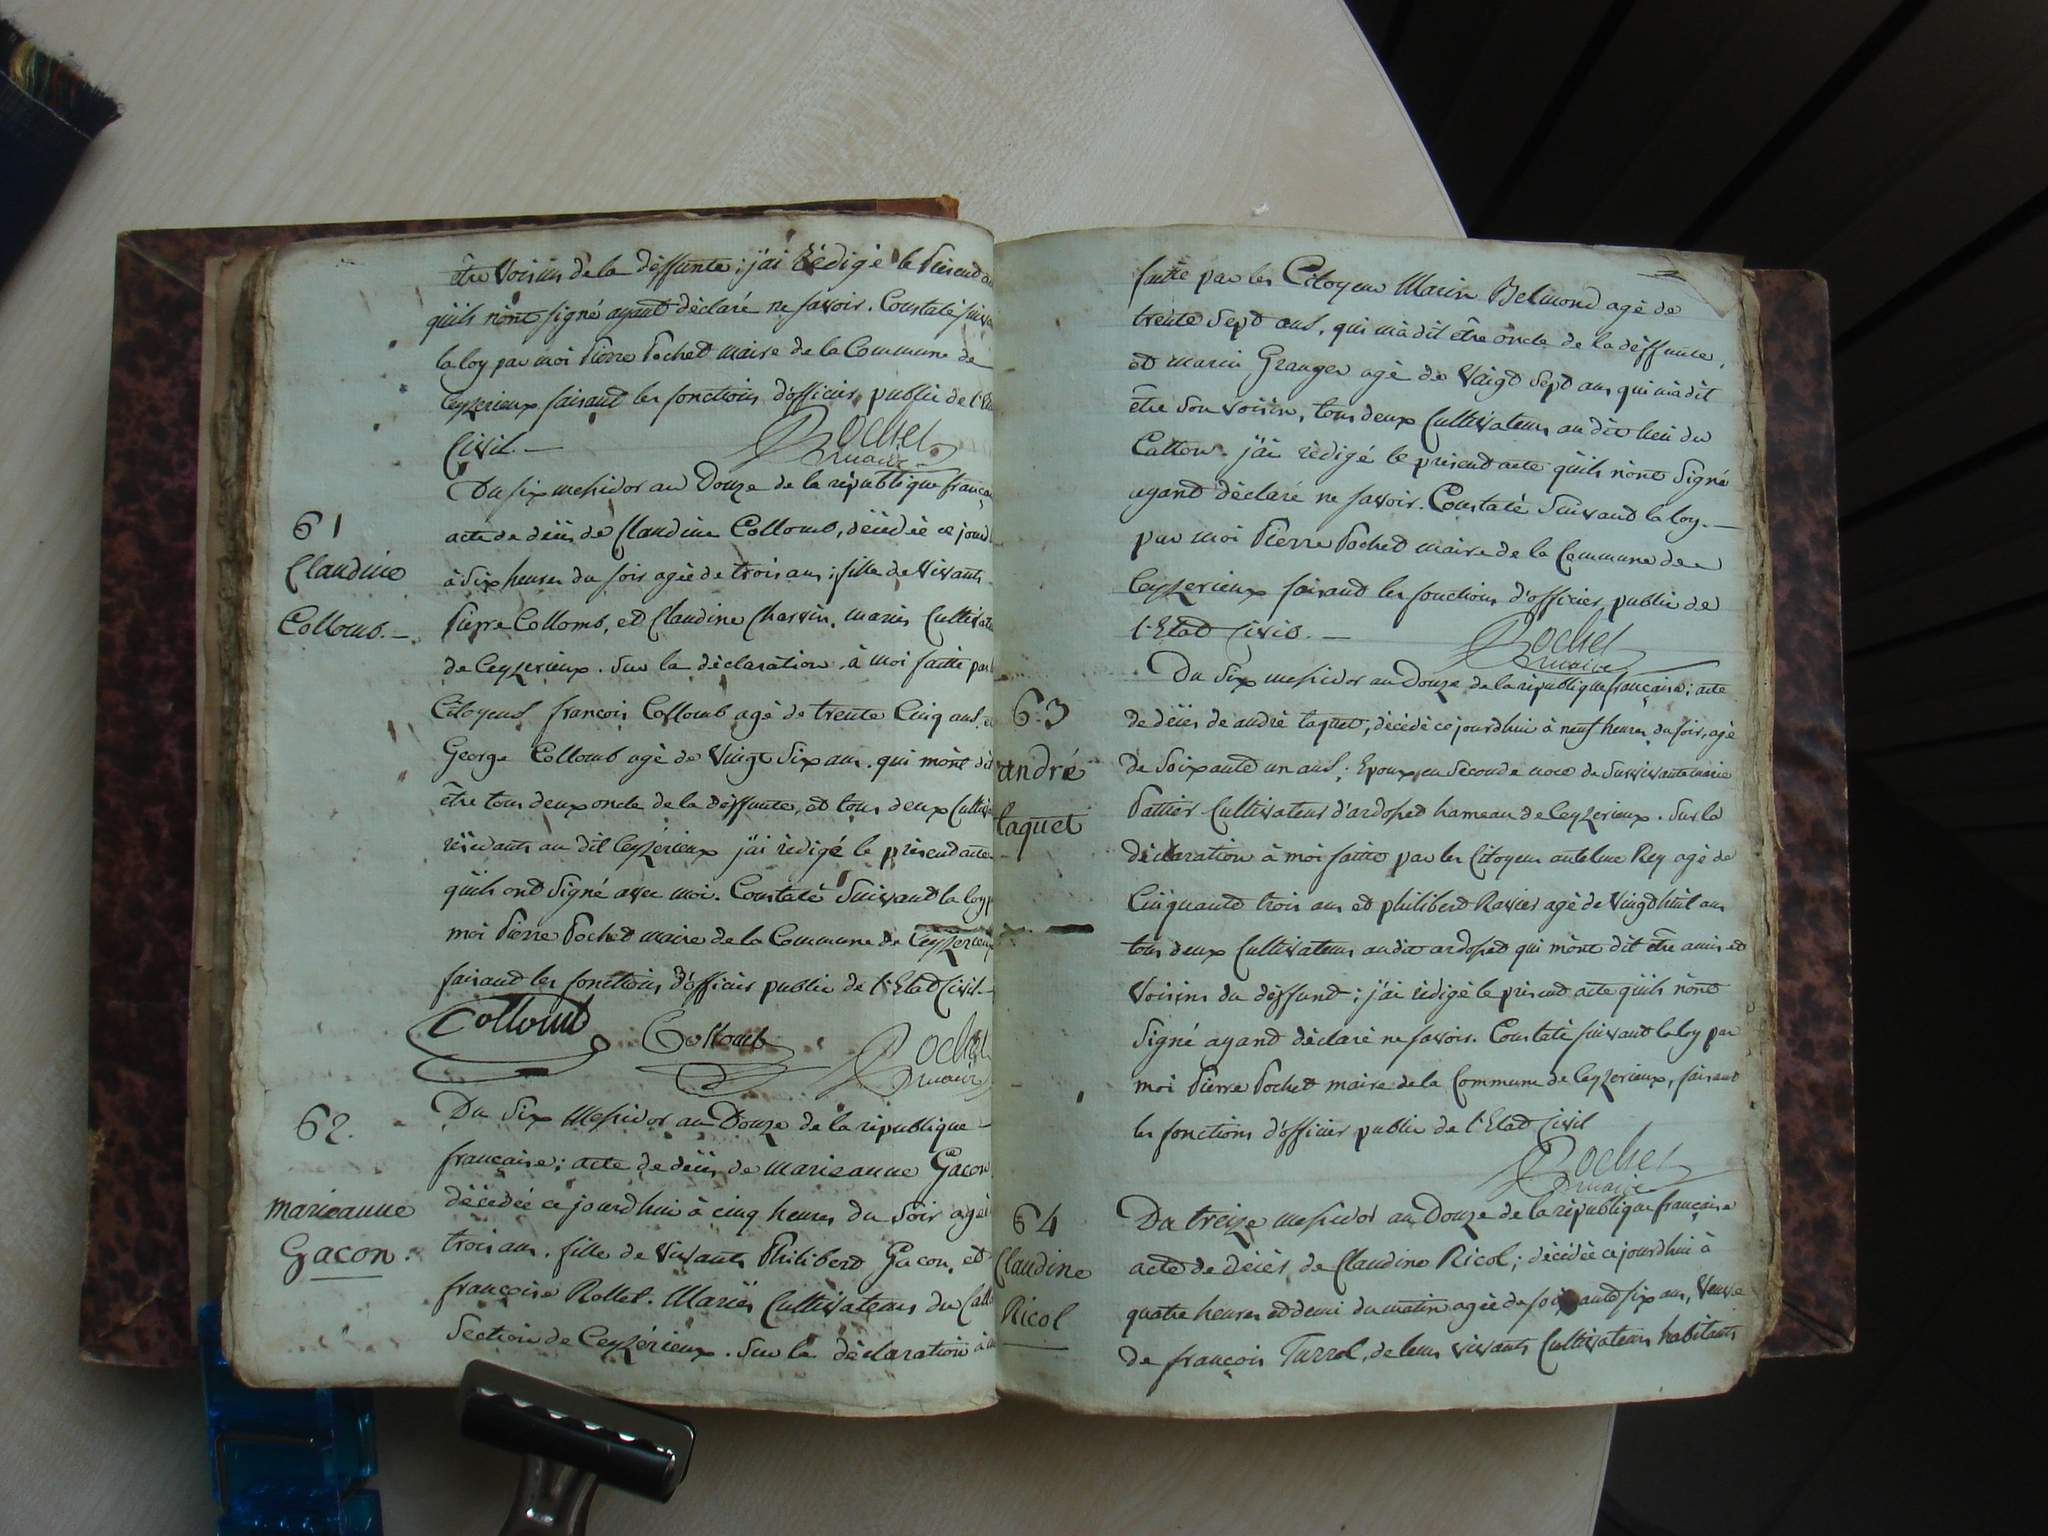 être voisins de la deffunte; j'ai rédigé le présend
quils n'ont signé ayant déclaré ne savoir. Constaté suiva
la loy par moi Pierre Pochet maire de la Commune de
Ceyzerieux faisant les fonctions d'officier public de l'Eta
Civil. —
Pochet
maire
Du six messidor an Douze de la république françai
61
acte de décés de Claudine Collomb, décédée ce jourd
Claudine
à six heures du soir agée de trois ans; fille de vivants
Collomb. —
Pierre Collomb, et Claudine Charvin, mariés Cultivate
de Ceyzerieux. Sur la déclaration à moi faitte par
Citoyens françois Collomb agé de trente Cinq ans, et
George Collomb agé de Vingt Six ans. qui m'ont dit
être tous deux oncle de la deffunte, et tous deux Cultiva
résidants au dit Ceyzérieux j'ai rédigé le présend acte
quils ont signé avec moi. Constaté Suivant la loy p
moi Pierre Pochet maire de la Commune de Ceyzerieux
faisant les fonctions d'officier public de l'Etat Civil. —
Collomb Collomb Pochet
maire
62.
Du Six Messidor an Douze de la république —
française; acte de décés de marieanne Gacon
marieanne
décédée ce jourd'hui à cinq heures du soir agée
Gacon.
trois ans. fille de vivants Philiberd Gacon, et
françoise Rollet. Mariés Cultivateurs du Catt
Section de Ceyzérieux. Sur la déclaration à m
faitte par les Citoyens Marin Belmond agé de
trente Sept ans, qui m'a dit être oncle de la deffunte,
et marin Granger agé de Vaigt Sept ans qui m'a dit
être son voisin, tous deux Cultivateurs au dit lieu du
Catton. j'ai rédigé le présend acte quils n'ont Signé
ayand déclaré ne savoir. Constaté Suivand la loy. —
par moi Pierre Pochet maire de la Commune de
Ceyzerieux faisand les fonctions d'officier public de
l'Etat Civil. —
Pochet
maire
Du Six messidor an Douze de la république française; acte
63
de décés de andré taquet, décédé ce jourdhui à neuf heures du soir, agé
andré
de Soixante un ans; Epoux en Seconde noce de Survivante marie
taquet
Pattier Cultivateur d'ardosset hameau de Ceyzerieux. Sur la
déclaration à moi faitte par les Citoyens antelme Rey agé de
Cinquante trois ans et philiberd Ravier agé de Vingd huit ans
tous deux Cultivateurs audit ardosset qui m'ont dit être amis et
Voisins du deffund; j'ai rédigé le présend acte quils n'ont
Signé ayand déclaré ne savoir. Constaté suivant la loy par
moi Pierre Pochet maire de la Commune de Ceyzerieux, faisant
les fonctions d'officier public de l'Etat Civil
Pochet
maire
64
Du treize messidor an Douze de la république française
Claudine
acte de décès de Claudine Nicol; décédée ce jourdhui à
Nicol
quatre heures et demi du matin agée de soixante six ans, Veuve
de françois Turrel, de leurs vivants Cultivateurs habitants